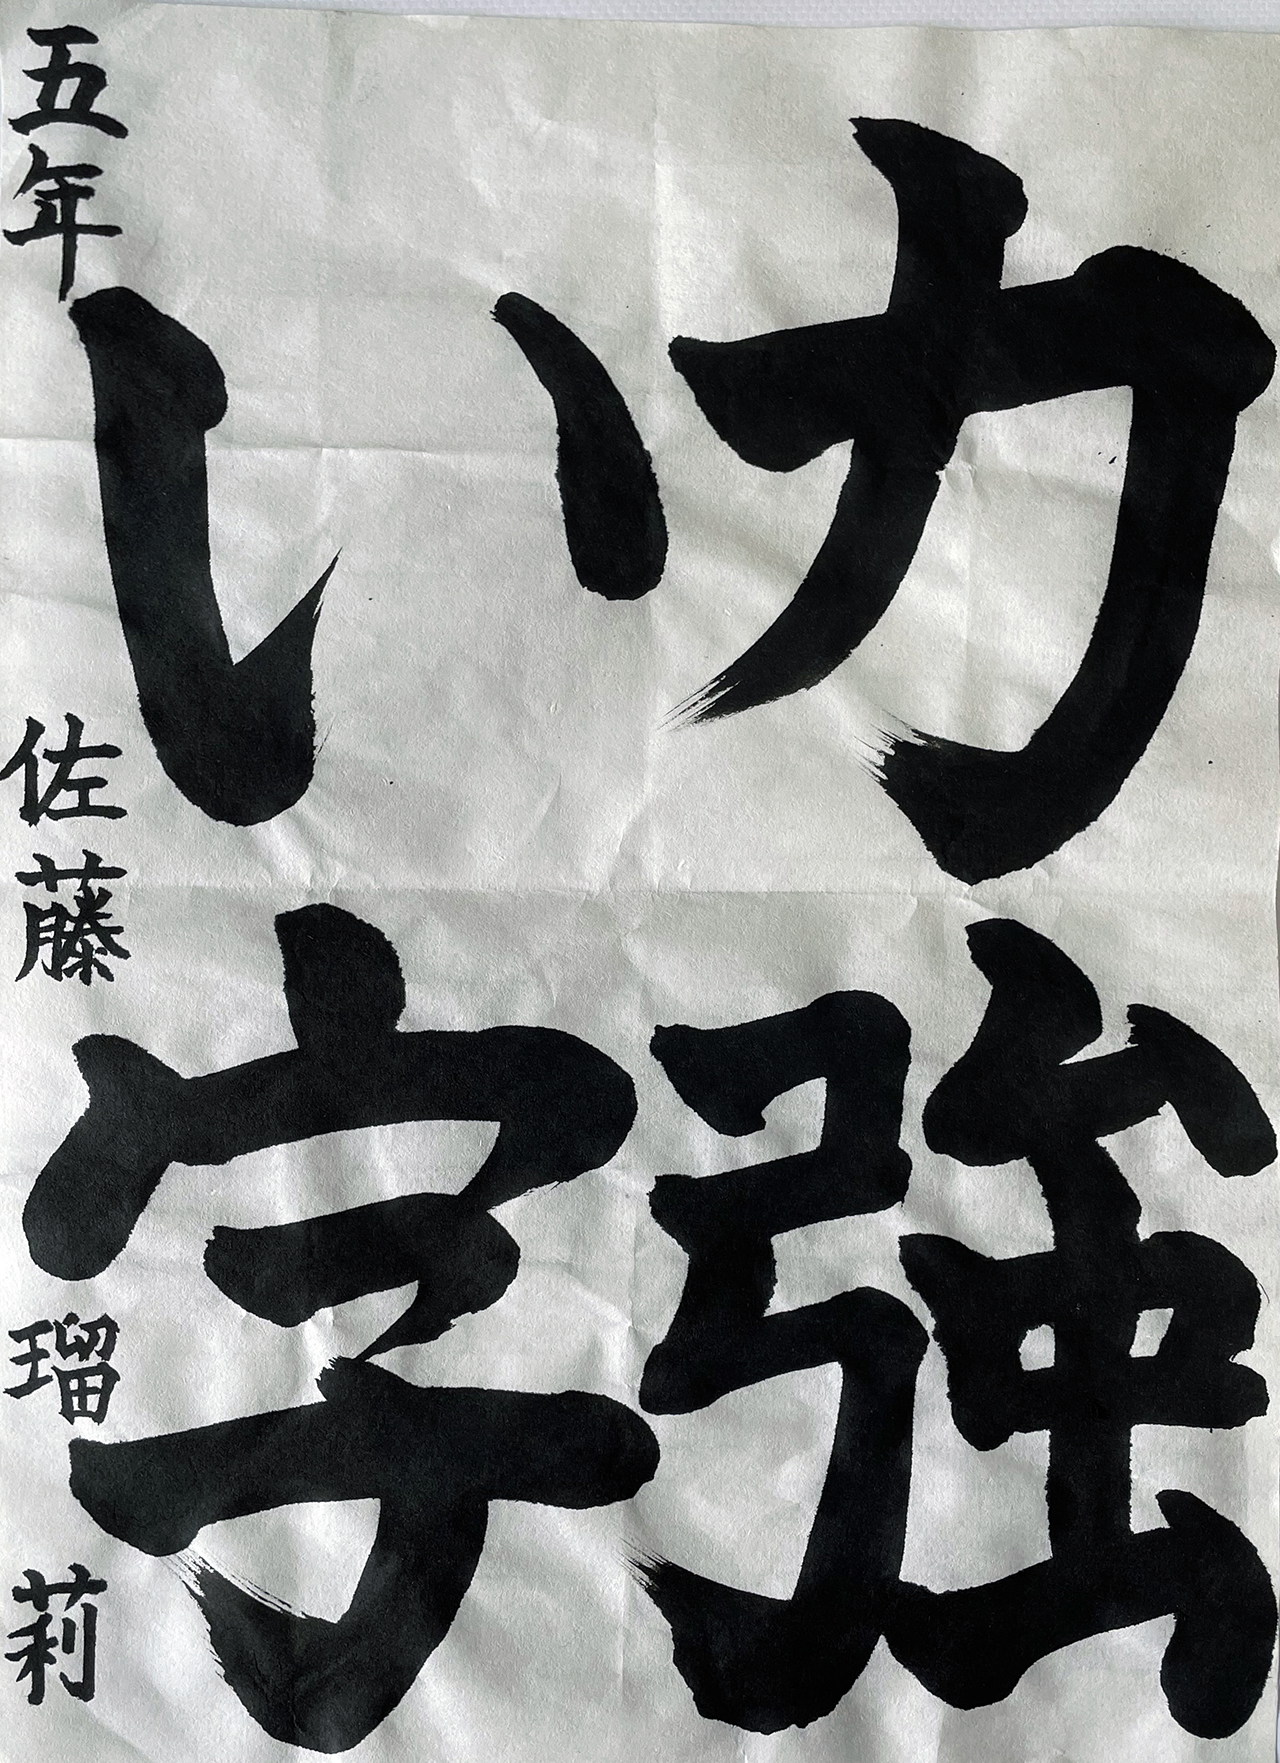 力強
い字
五年 佐藤 瑠莉